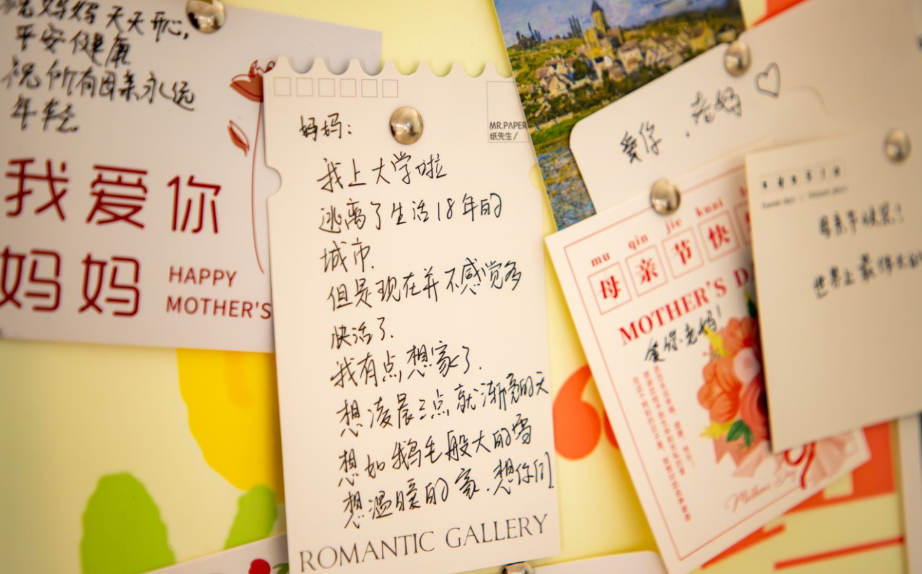 祝妈妈天天开心,
平安健康
祝所有母亲永远
年轻
我爱你
妈妈
HAPPY
MOTHER'S
MR.PAPER
纸先生/
妈妈:
我上大学啦
逃离了生活18年的
城市.
但是现在并不感觉多
快活了.
我有点想家了.
想凌晨三点就渐亮的天
想如鹅毛般大的雪
想温暖的家.想你们
ROMANTIC GALLERY
爱你,老妈♡
mu qin jie kuai
母亲节快
MOTHER'S D
爱你老妈!
Mother Day
母亲节快乐!
世界上最伟大